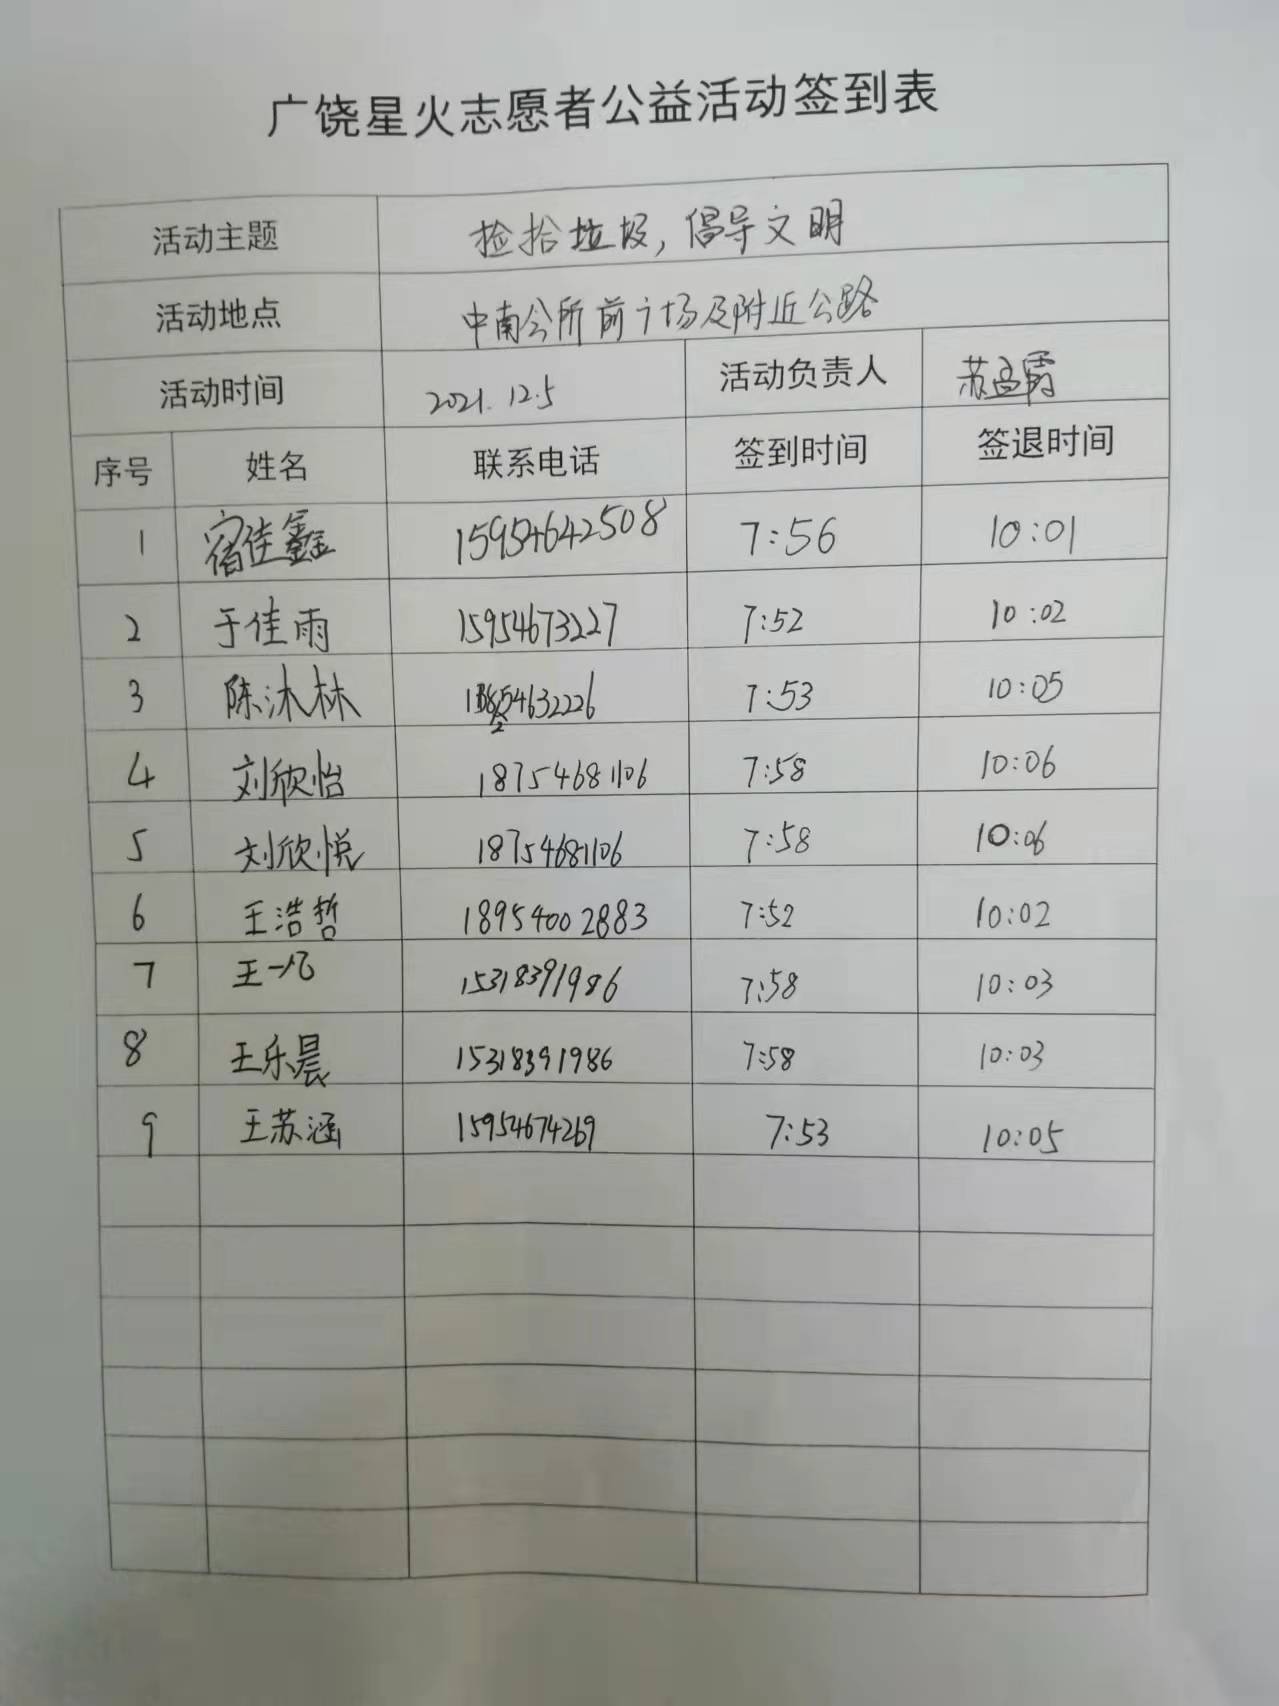 广饶星火志愿者公益活动签到表
活动主题 捡拾垃圾，倡导文明
活动地点 中南会所前广场及附近公路
活动时间 2021.12.5 活动负责人 苏孟霞
序号 姓名 联系电话 签到时间 签退时间
1 宿佳鑫 15954642508 7:56 10:01
2 于佳雨 15954673227 7:52 10:02
3 陈沐林 7:53 10:05
4 刘欣怡 18754681106 7:58 10:06
5 刘欣悦 18754681106 7:58 10:06
6 王浩哲 18954002883 7:52 10:02
7 王一凡 15318391986 7:58 10:03
8 王乐晨 15318391986 7:58 10:03
9 王苏涵 15954674269 7:53 10:05